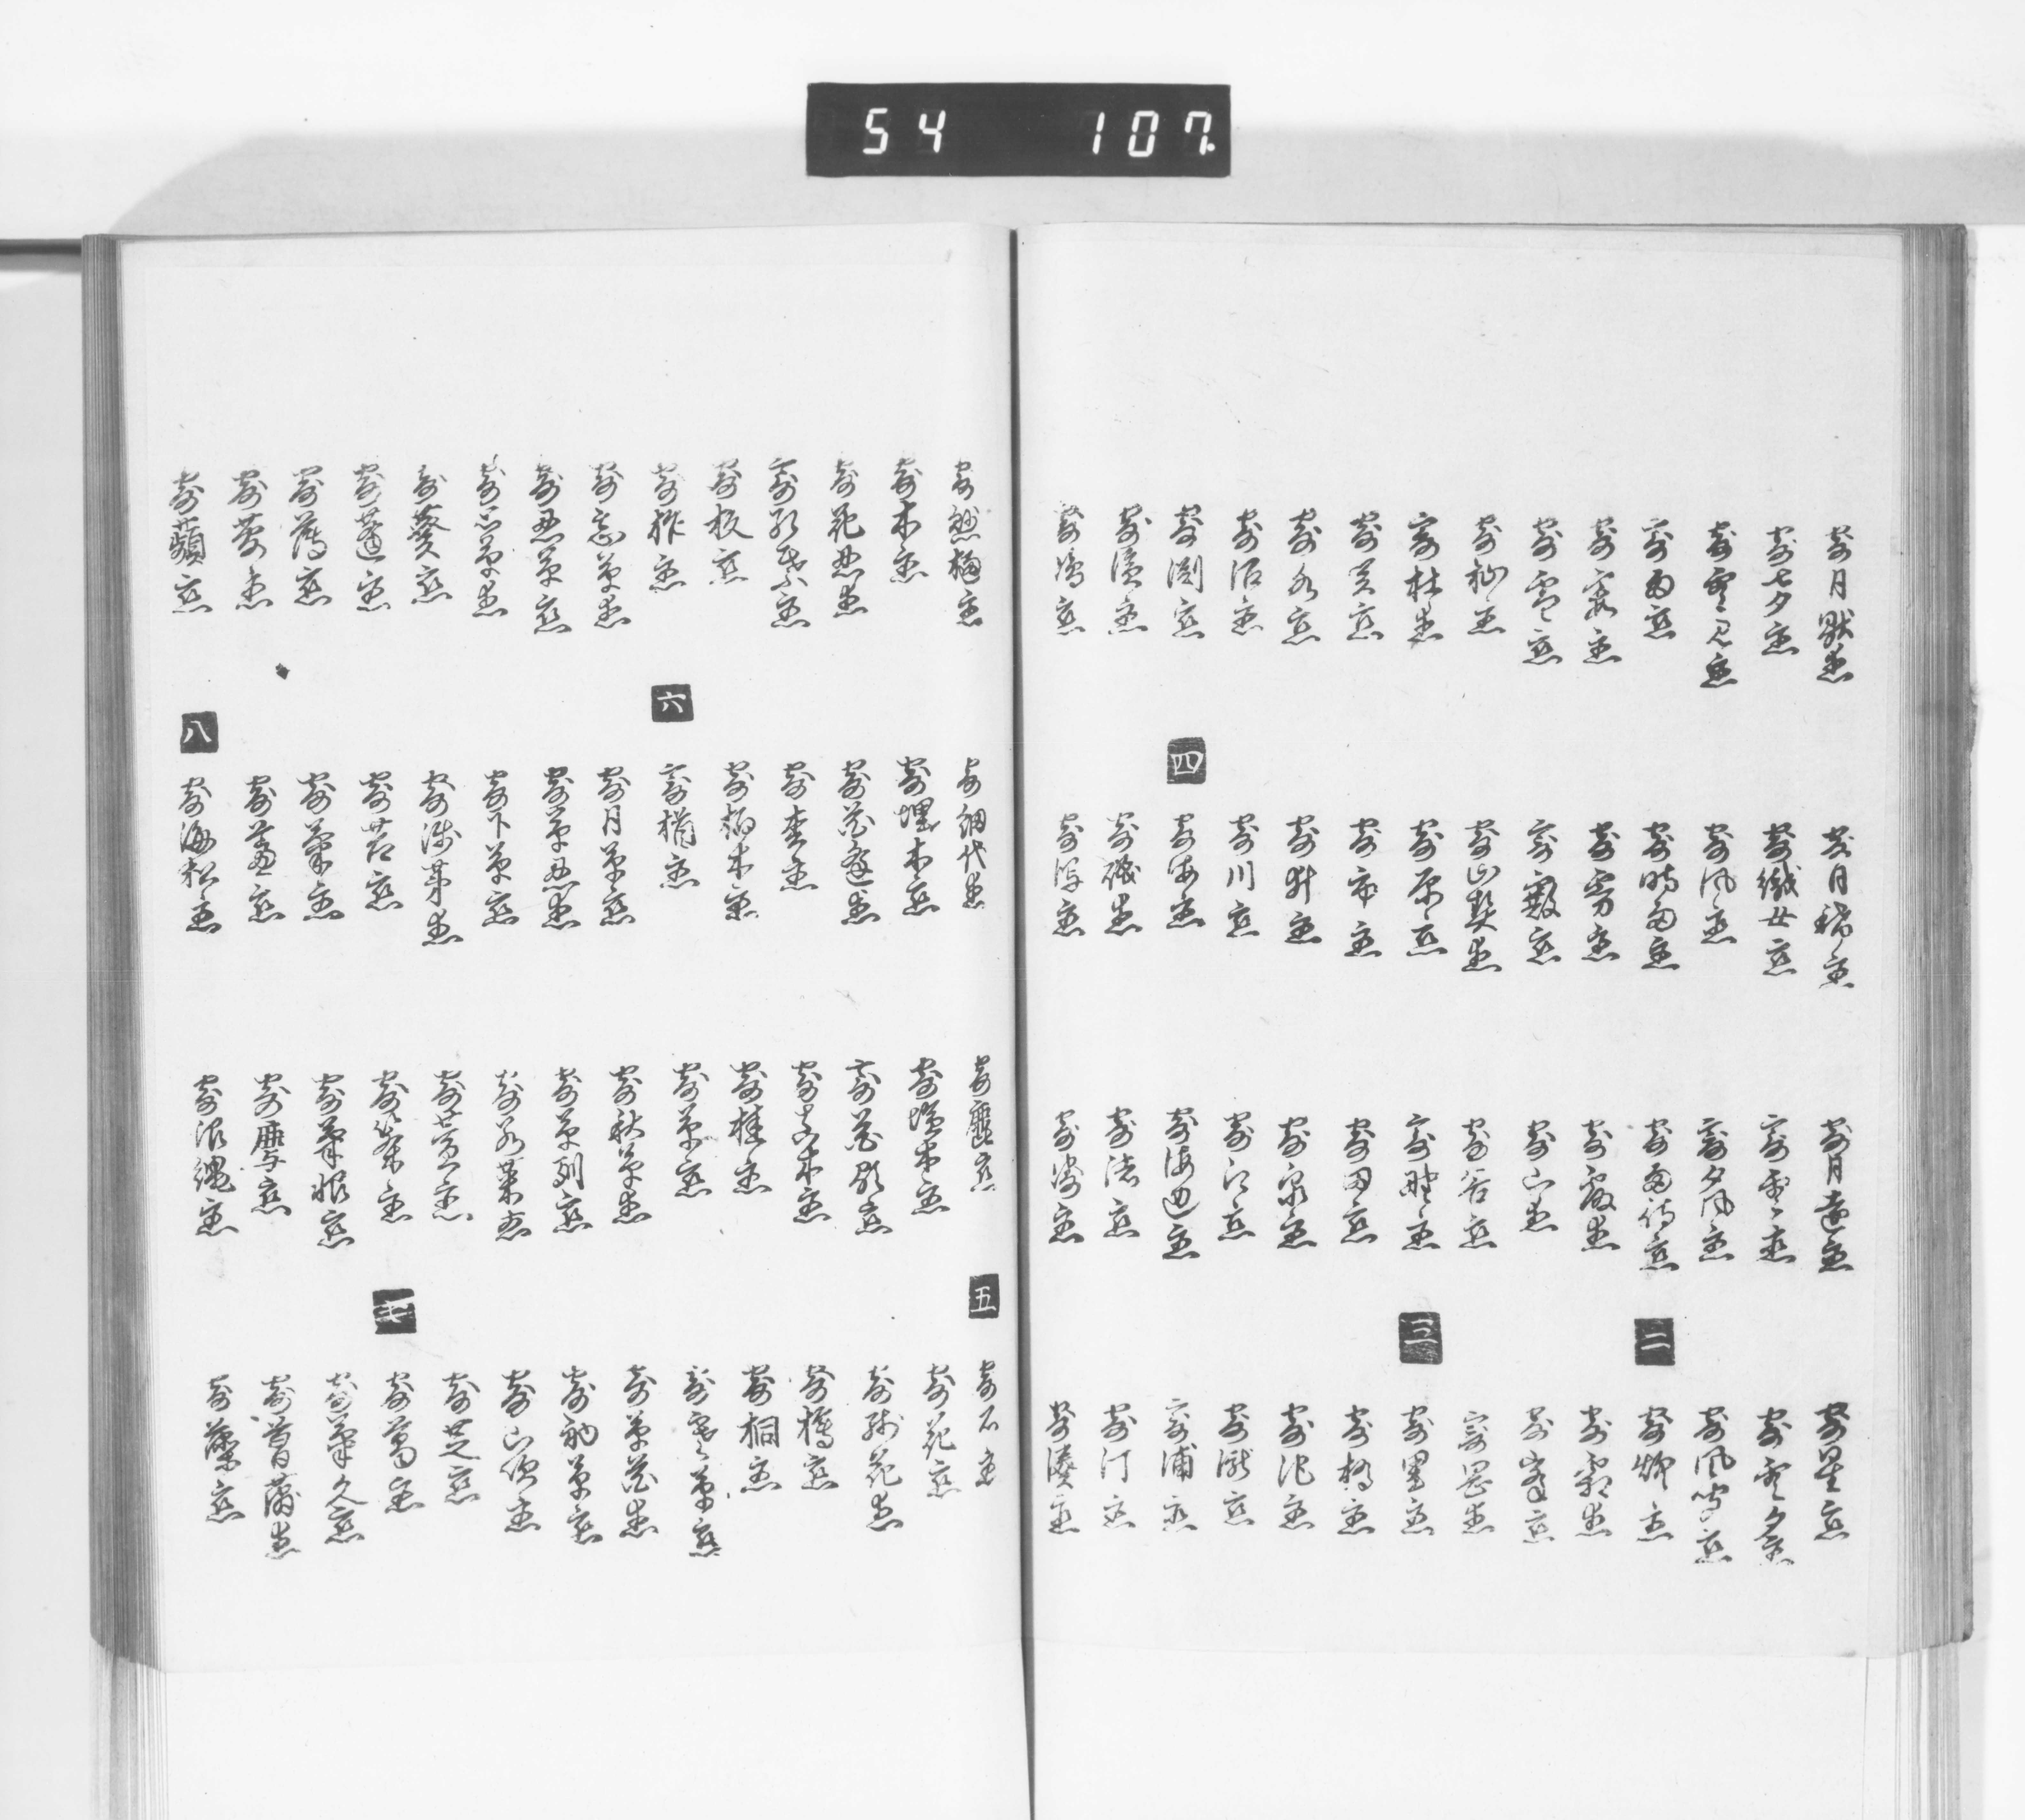 54 107
寄月獣恋 寄月稀恋 寄月遠恋 寄星恋
寄七夕恋 寄織女恋 寄雲恋 寄雲夕恋
寄雲忍恋 寄風恋 寄夕風恋 寄風聞恋
寄雨恋 寄時雨恋 寄雨待恋 二 寄烟恋
寄霞恋 寄霧恋 寄露恋 寄霜恋
寄雪恋 寄霰恋 寄山恋 寄峯恋
寄杣恋 寄山契恋 寄谷恋 寄岡恋
寄杜恋 寄原恋 寄野恋 三 寄里恋
寄関恋 寄市恋 寄田恋 寄橋恋
寄水恋 寄井恋 寄泉恋 寄池恋
寄沼恋 寄川恋 寄江恋 寄瀧恋
寄淵恋 四 寄海恋 寄海辺恋 寄浦恋
寄濱恋 寄磯恋 寄渚恋 寄汀恋
寄嶋恋 寄恋 寄恋 寄湊恋
寄懸樋恋 寄網代恋 寄塵恋 五 寄石恋
寄木恋 寄埋木恋 寄塩木恋 寄花恋
寄花忍恋 寄花逢恋 寄花顕恋 寄残花恋
寄恋 寄恋 寄真木恋 寄樗恋
寄恋 寄柏木恋 寄桂恋 寄桐恋
寄柞恋 六 寄楢恋 寄草恋 寄草恋
寄忘草恋 寄月草恋 寄秋草恋 寄草花恋
寄忍草恋 寄草忍恋 寄草別恋 寄草恋
寄思草恋 寄下草恋 寄若菜恋 寄恋
寄葵恋 寄浅茅恋 寄萱恋 寄芝恋
寄蓬恋 寄苔恋 寄篠恋 七 寄葛恋
寄薄恋 寄葦恋 寄葦恨恋 寄葦久恋
寄菱恋 寄恋 寄恋 寄菖蒲恋
寄蘋恋 八 寄海松恋 寄縄恋 寄藻恋